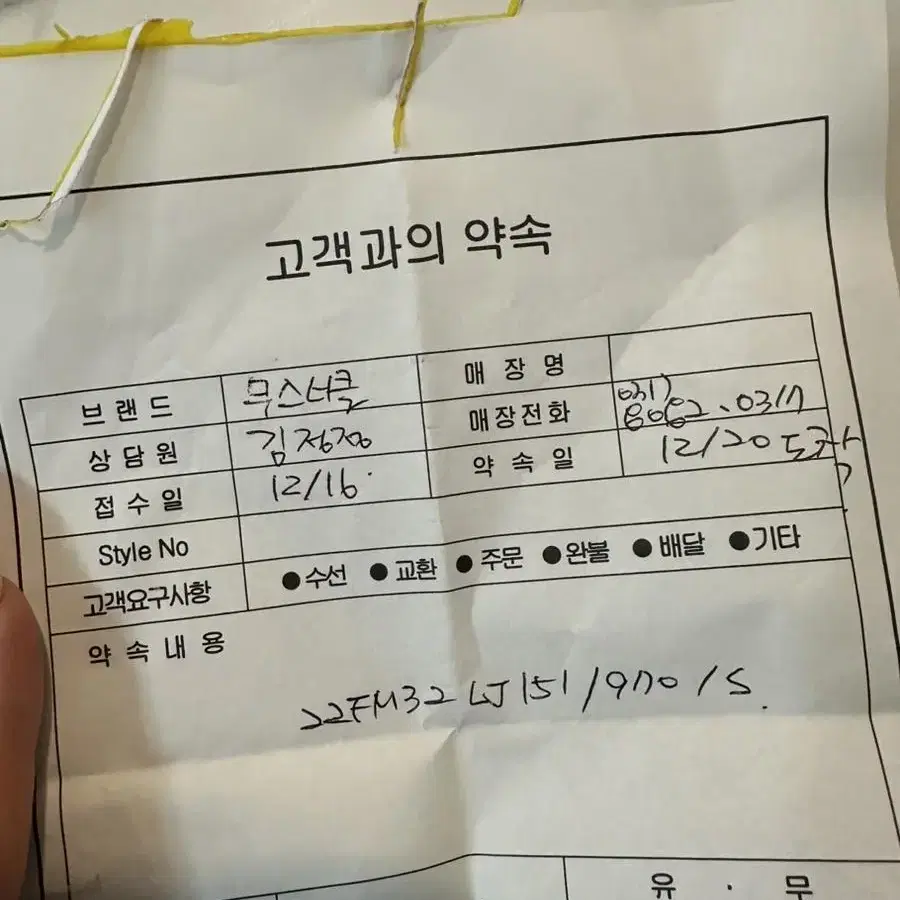 고객과의 약속
브랜드 무스너클 매장명
상담원 매장전화 031)
접수일 12/16 약속일 12/20
Style No
고객요구사항 ●수선 ●교환 ●주문 ●완불 ●배달 ●기타
약속내용
22FM32LJ151/970/S
유 · 무